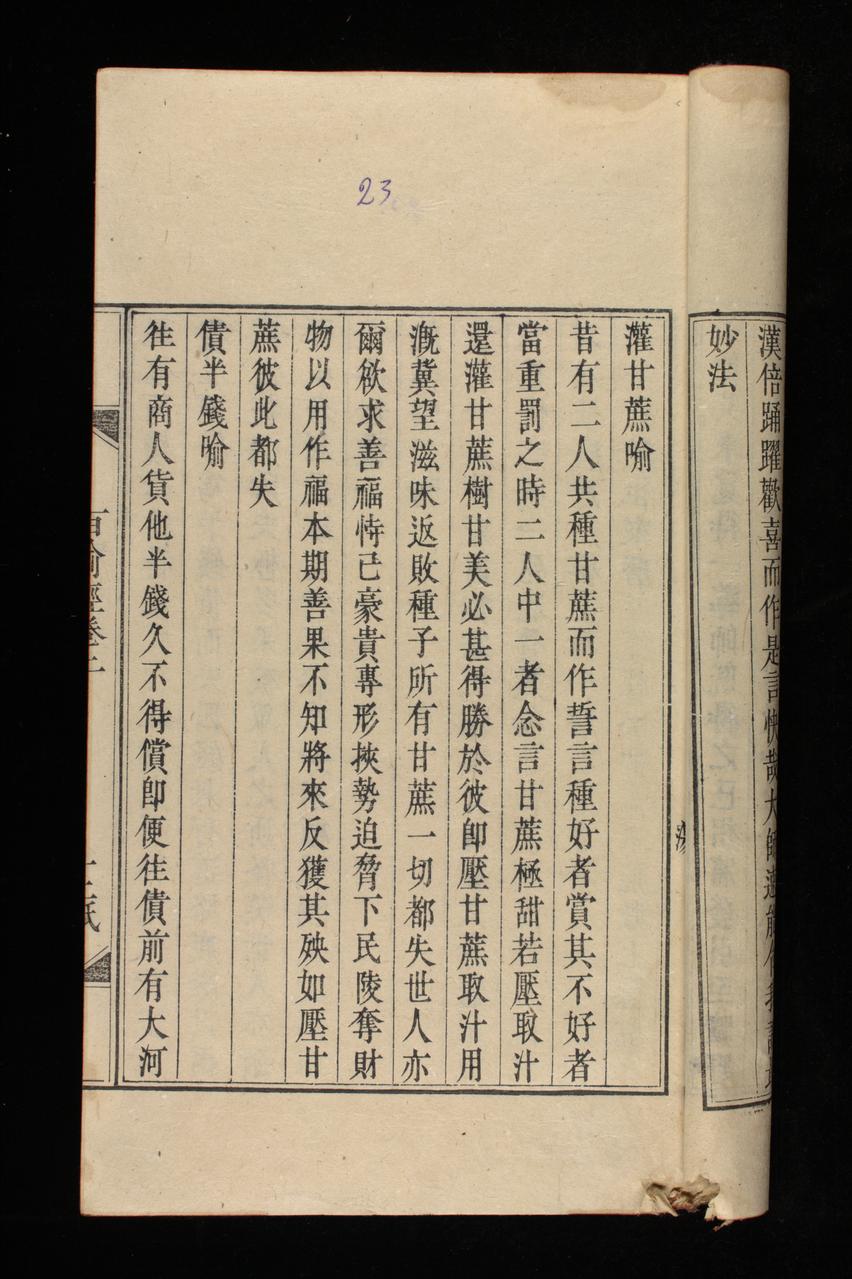 漢倍踊躍歡喜而作是言快哉大師
妙法
灌甘蔗喻
昔有二人共種甘蔗而作誓言種好者賞其不好者
當重罰之時二人中一者念言甘蔗極甜若壓取汁
還灌甘蔗樹甘美必甚得勝於彼卽壓甘蔗取汁用
溉冀望滋味返敗種子所有甘蔗一切都失世人亦
爾欲求善福恃己豪貴專形挾勢迫脅下民陵奪財
物以用作福本期善果不知將來反獲其殃如壓甘
蔗彼此都失
債半錢喻
往有商人貸他半錢久不得償卽便往債前有大河
百喻經卷上
23